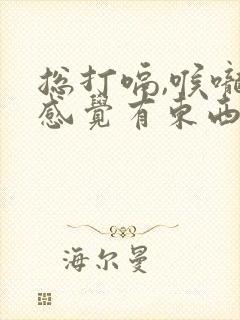 总打嗝,喉嚨
感覺有東西
海尔曼